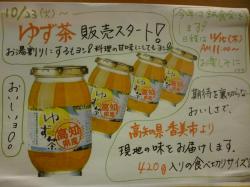 10/23(火)～
ゆず茶 販売スタート!
お湯割りにするもヨシ!料理の甘味にしてもヨシ!
今年は
4/10(木)
AM11:00～
お楽しみに
おいしいヨ!!
高知県産
ゆず茶
期待を裏切らない
おいしさで、
高知県 香美市より
現地の味をお届けします。
420g入りの食べ切りサイズ